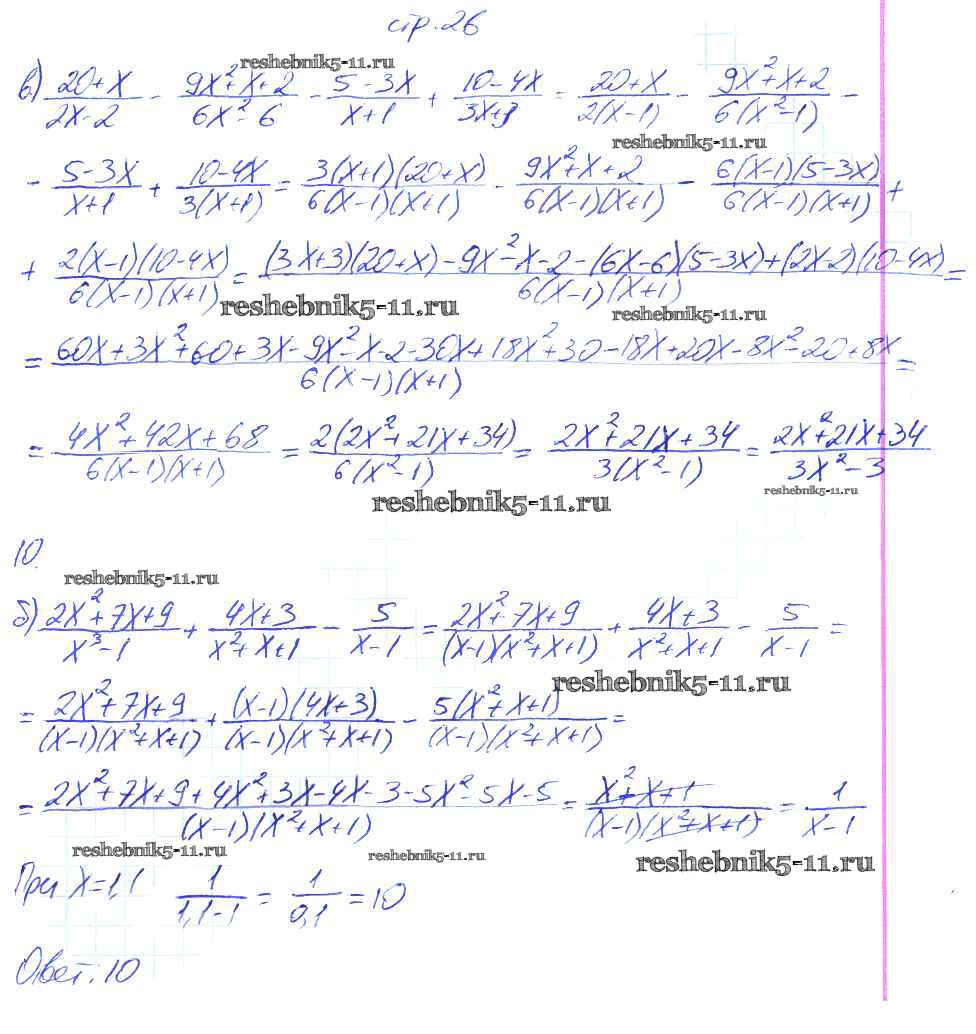 стр. 26
reshebnik5-11.ru
в) (20+x)/(2x-2) - (9x²+x+2)/(6x²-6) - (5-3x)/(x+1) + (10-4x)/(3x+3) = (20+x)/(2(x-1)) - (9x²+x+2)/(6(x²-1)) -
reshebnik5-11.ru
- (5-3x)/(x+1) + (10-4x)/(3(x+1)) = (3(x+1)(20+x))/(6(x-1)(x+1)) - (9x²+x+2)/(6(x-1)(x+1)) - (6(x-1)(5-3x))/(6(x-1)(x+1)) +
+ (2(x-1)(10-4x))/(6(x-1)(x+1)) = ((3x+3)(20+x)-9x²-x-2-(6x-6)(5-3x)+(2x-2)(10-4x))/(6(x-1)(x+1)) =
reshebnik5-11.ru reshebnik5-11.ru
= (60x+3x²+60+3x-9x²-x-2-30x+18x²+30-18x+20x-8x²-20+8x)/(6(x-1)(x+1)) =
= (4x²+42x+68)/(6(x-1)(x+1)) = (2(2x²+21x+34))/(6(x²-1)) = (2x²+21x+34)/(3(x²-1)) = (2x²+21x+34)/(3x²-3)
reshebnik5-11.ru reshebnik5-11.ru
10.
reshebnik5-11.ru
б) (2x²+7x+9)/(x³-1) + (4x+3)/(x²+x+1) - 5/(x-1) = (2x²+7x+9)/((x-1)(x²+x+1)) + (4x+3)/(x²+x+1) - 5/(x-1) =
reshebnik5-11.ru
= (2x²+7x+9)/((x-1)(x²+x+1)) + ((x-1)(4x+3))/((x-1)(x²+x+1)) - (5(x²+x+1))/((x-1)(x²+x+1)) =
= (2x²+7x+9+4x²+3x-4x-3-5x²-5x-5)/((x-1)(x²+x+1)) = (x²+x+1)/((x-1)(x²+x+1)) = 1/(x-1)
reshebnik5-11.ru reshebnik5-11.ru reshebnik5-11.ru
При x=1,1 1/(1,1-1) = 1/(0,1) = 10
Ответ: 10